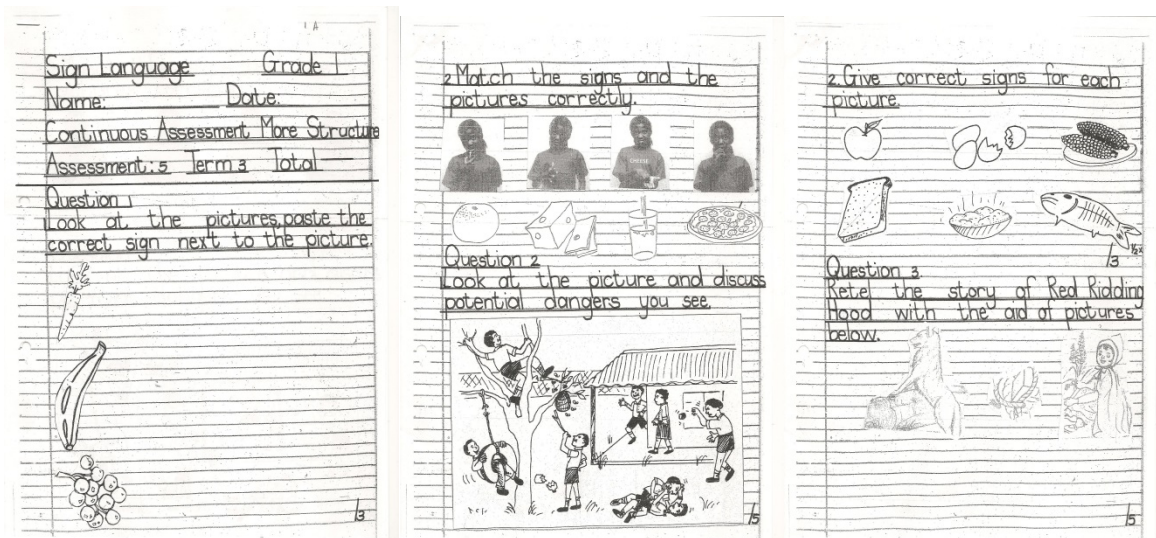 Sign Language Grade 1
Name: Date:
Continuous Assessment More Structure
Assessment: 5 Term 3 Total
Question 1
Look at the pictures, paste the
correct sign next to the picture.
/3
2 Match the signs and the
pictures correctly.
CHEESE
Question 2
Look at the picture and discuss
potential dangers you see.
/5
2. Give correct signs for each
picture.
/3
½x
Question 3
Retel the story of Red Ridding
Hood with the aid of pictures
below.
/5